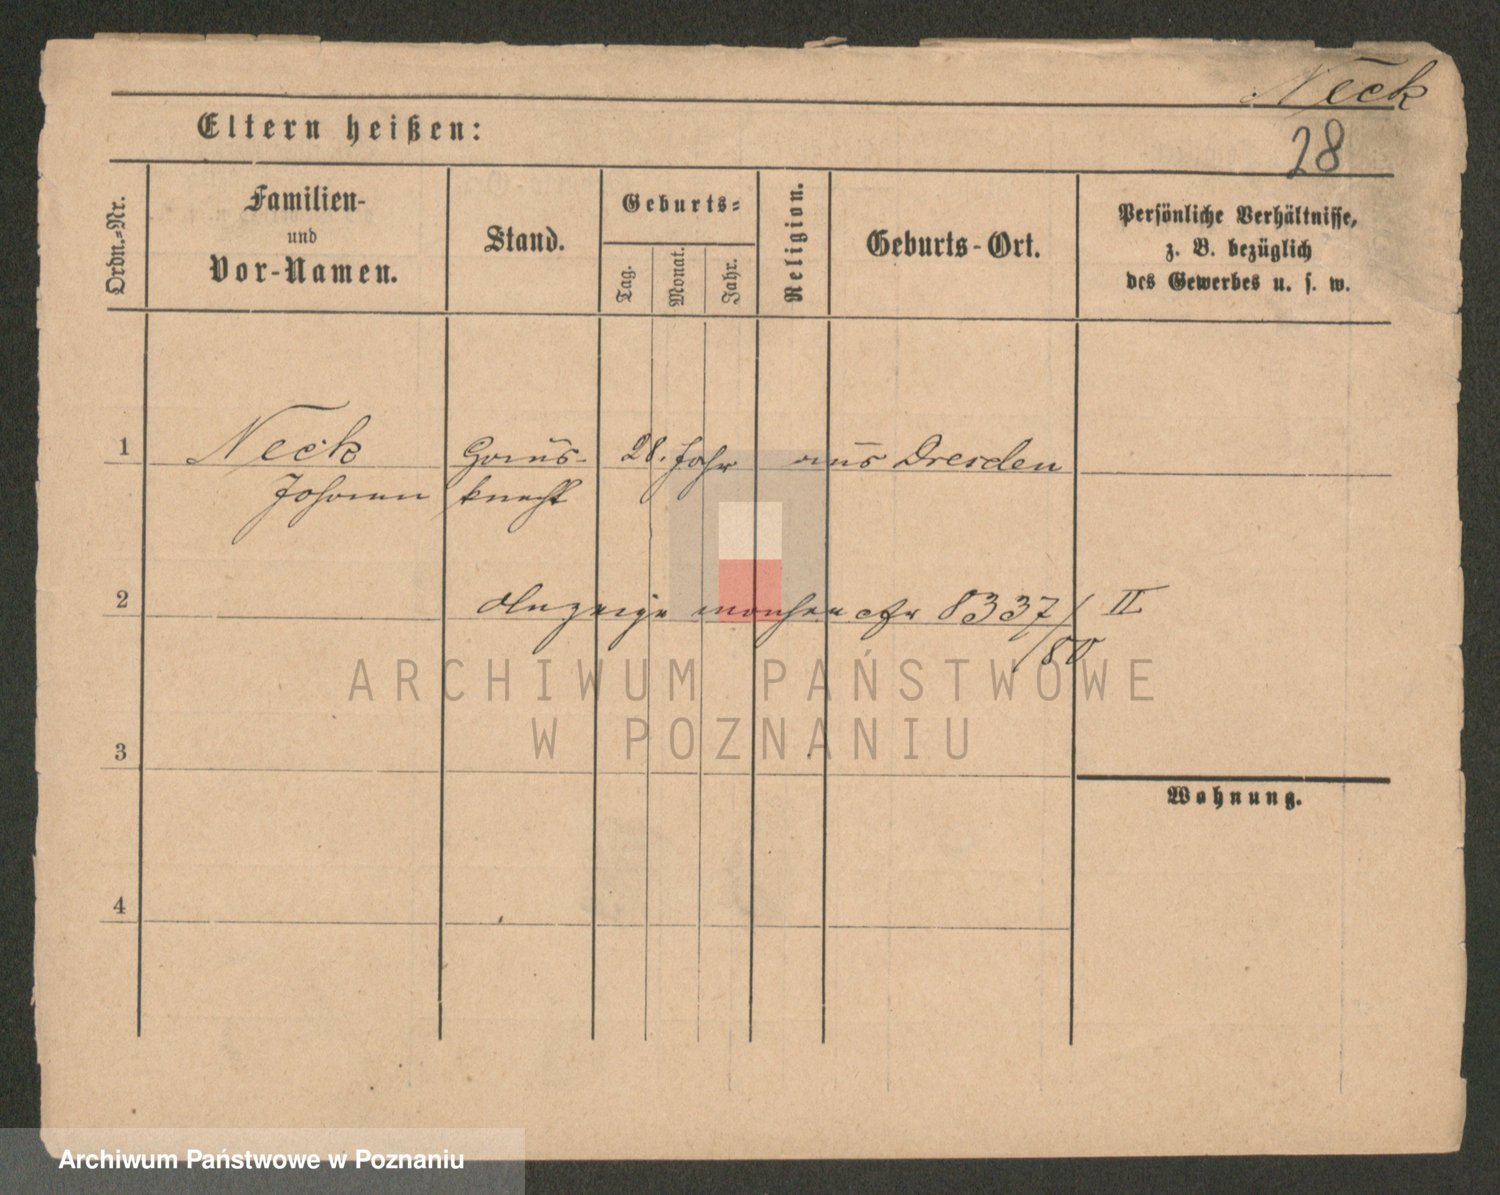 Neck
28
Eltern heißen:
Ordn.-Nr.
Familien-
und
Vor-Namen.
Stand.
Geburts-
Tag.
Monat.
Jahr.
Religion.
Geburts-Ort.
Persönliche Verhältnisse,
z. B. bezüglich
des Gewerbes u. s. w.
1
Neck
Johann
Haus-
knecht
28. Jahr
aus Dresden
2
Anzeige machen cfr 8337/80 II
3
Wohnung.
4
ARCHIWUM PAŃSTWOWE
W POZNANIU
Archiwum Państwowe w Poznaniu